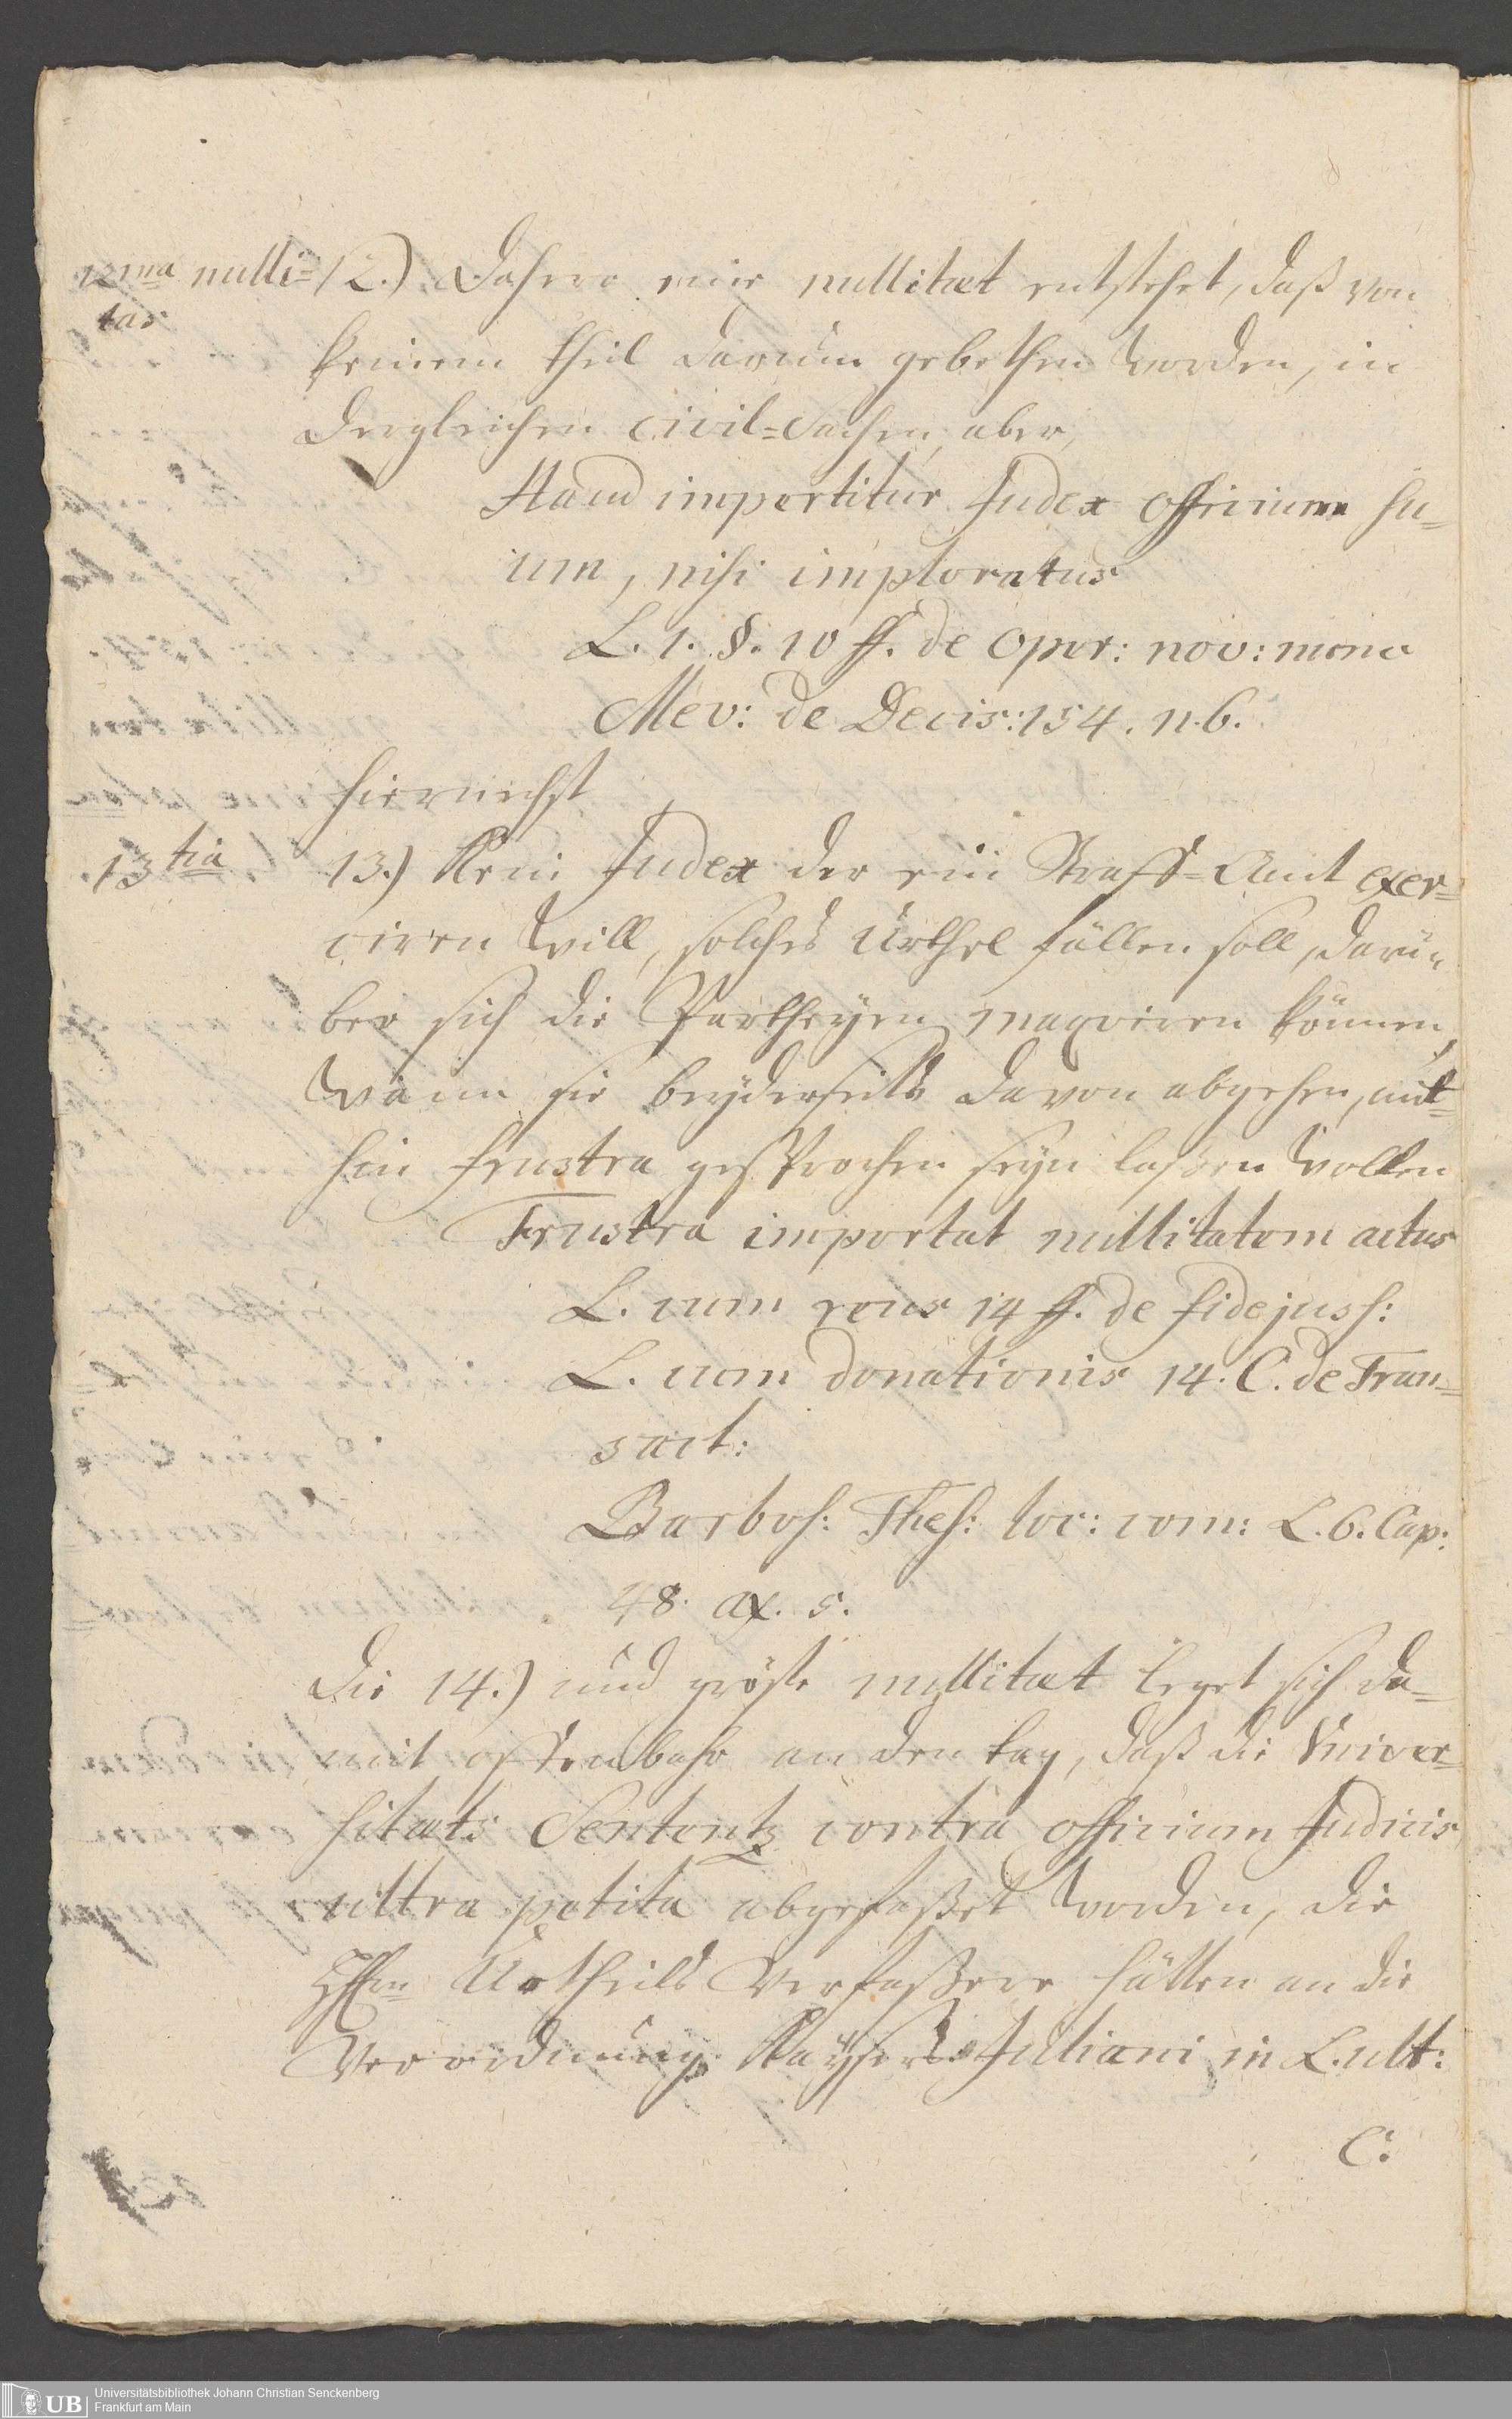 12ma nulli=
tas
12.) Dahero eine nullitæt entstehet, daß von
keinem theil darum gebethen worden, in
dergleichen Civil=Sachen aber,
Haud impertitur Judex officium su=
um, nisi imploratus
L. 1. §. 10 ff. de Oper: nov: nunc
Mev: de Decis: 154. n. 6.
hiernechst
13tia
13.) Kein Judex der ein Straff=Amt exer=
ciren will, solches Urthel fällen soll, darü=
ber sich die Partheyen moqviren können,
wann sie beyderseits davon abgehen, mit=
hin frustra gesprochen seyn laßen wollen
Frustra importat nullitatem actus
L. cum reus 14 ff. de fidejuss:
L. cum donationis 14. C. de Tran=
sact:
Barbos: Thes: loc: com: L. 6. Cap:
48. ax. 5.
Die 14.) und gröste nullitæt leget sich da=
mit offenbahr an den tag, daß die Univer=
sitæts Sententz contra officium Judicis
ultra petita abgefaßet worden, die
HHrn Urtheils Verfaßere hätten an die
Verordnung Kaysers Juliani in L. ult:
C.
Universitätsbibliothek Johann Christian Senckenberg
Frankfurt am Main
UB